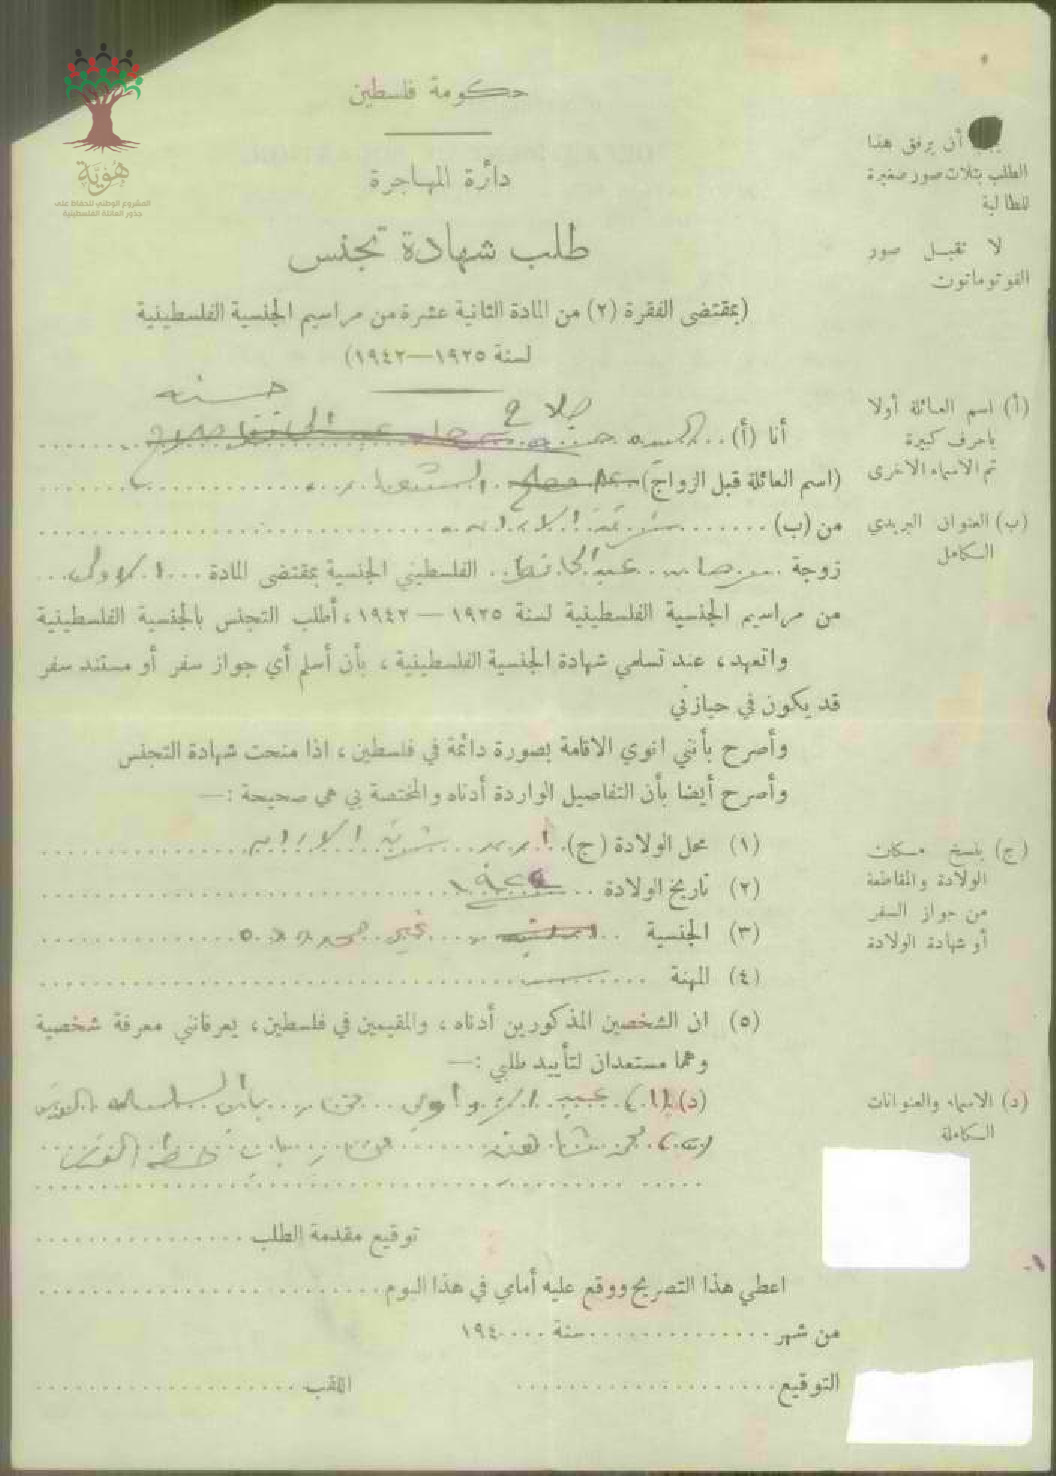 هوية
المشروع الوطني للحفاظ على
جذور العائلة الفلسطينية
حكومة فلسطين
دائرة المهاجرة
طلب شهادة تجنس
(بمقتضى الفقرة (٢) من المادة الثانية عشرة من مراسيم الجنسية الفلسطينية
لسنة ١٩٢٥—١٩٤٢)
أن يرفق هذا
الطلب بثلاث صور صغيرة
للطالبة
لا تقبل صور
الفوتوماتون
حسنه
صلاح
أنا (أ)
(أ) اسم العائلة أولا
باحرف كبيرة
ثم الاسماء الاخرى
(اسم العائلة قبل الزواج)
من (ب)
(ب) العنوان البريدي
الكامل
زوجة عبد الحافظ الفلسطيني الجنسية بمقتضى المادة الاولى
من مراسيم الجنسية الفلسطينية لسنة ١٩٢٥ — ١٩٤٢، أطلب التجنس بالجنسية الفلسطينية
واتعهد، عند تسلمي شهادة الجنسية الفلسطينية، بأن أسلم أي جواز سفر أو مستند سفر
قد يكون في حيازتي
وأصرح بأنني انوي الاقامة بصورة دائمة في فلسطين، اذا منحت شهادة التجنس
وأصرح أيضا بأن التفاصيل الواردة أدناه والمختصة بي هي صحيحة :—
(١) محل الولادة (ج) شرق الاردن
(ج) ينسخ مكان
الولادة والمقاطعة
من جواز السفر
أو شهادة الولادة
(٢) تاريخ الولادة
(٣) الجنسية غير محدوده
(٤) المهنة
(٥) ان الشخصين المذكورين أدناه، والمقيمين في فلسطين، يعرفانني معرفة شخصية
وهما مستعدان لتأييد طلبي :—
(د) باب السلسله القدس
(د) الاسماء والعنوانات
الكاملة
توقيع مقدمة الطلب
اعطي هذا التصريح ووقع عليه أمامي في هذا اليوم
من شهر سنة ١٩٤
التوقيع اللقب